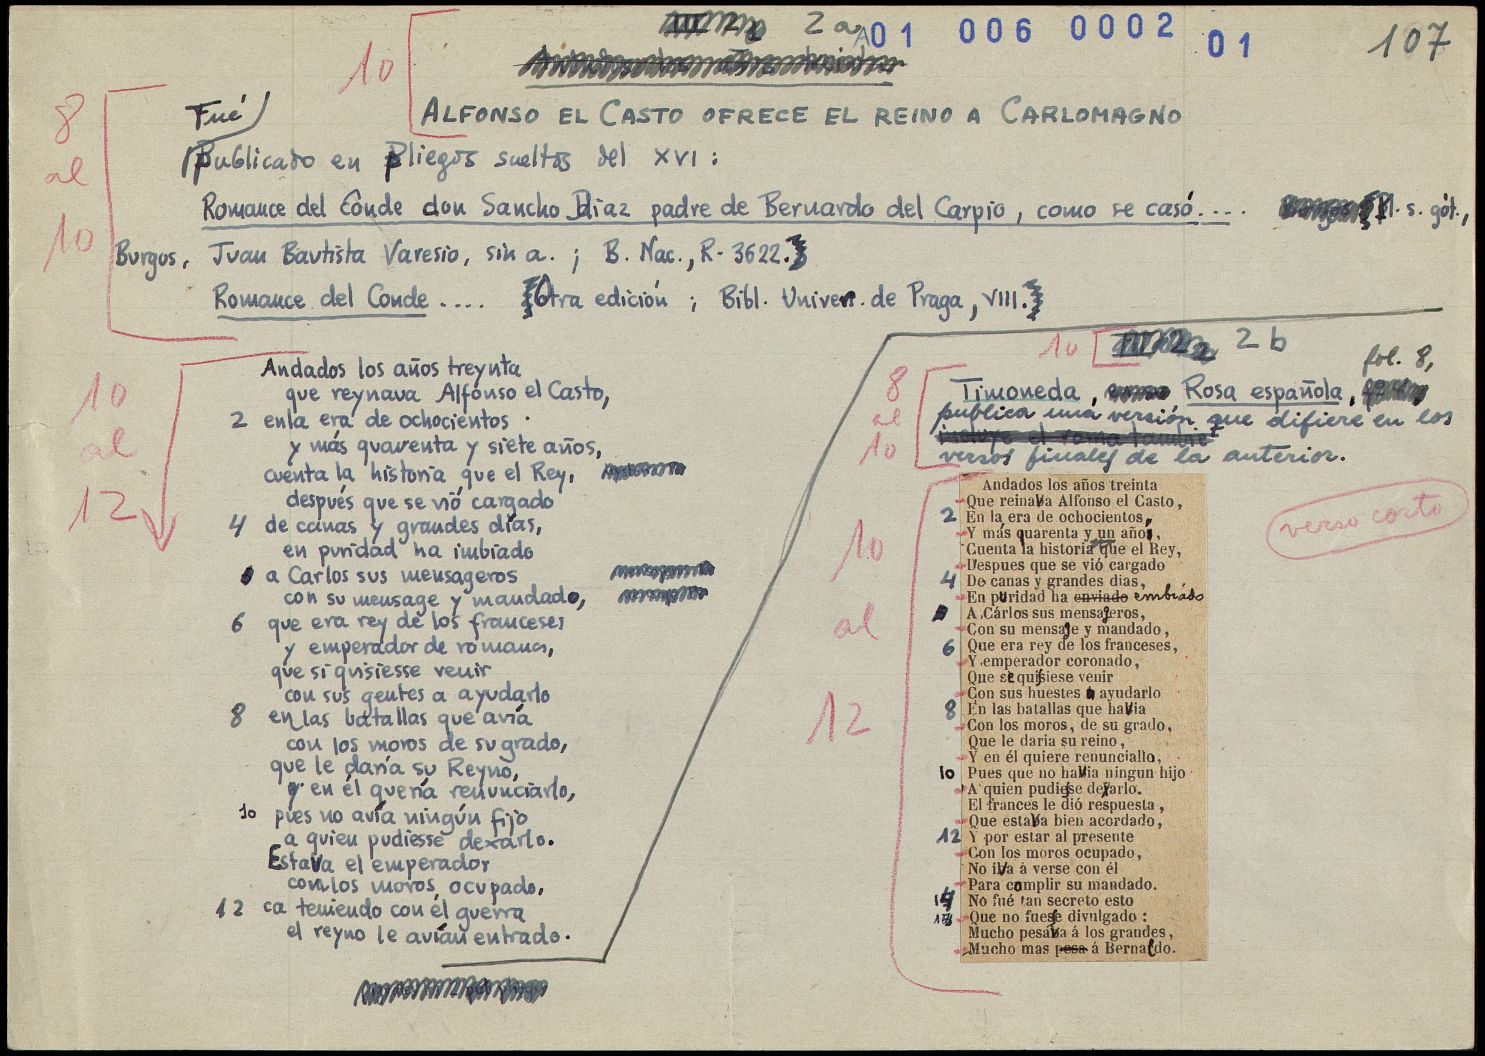 2a
A01 006 0002 01
107
10
ALFONSO EL CASTO OFRECE EL REINO A CARLOMAGNO
8
al
10
Fué
Publicado en Pliegos sueltos del XVI :
Romance del Conde don Sancho Diaz padre de Bernardo del Carpio, como se casó.... Pl. s. gót.,
Burgos, Juan Bautista Varesio, sin a. ; B. Nac., R-3622.
Romance del Conde .... Otra edición ; Bibl. Univer. de Praga, VIII.
10
al
12
Andados los años treynta
que reynava Alfonso el Casto,
2 enla era de ochocientos
y más quarenta y siete años,
cuenta la historia que el Rey,
después que se vió cargado
4 de canas y grandes días,
en puridad ha imbiado
a Carlos sus mensageros
con su mensage y mandado,
6 que era rey de los franceses
y emperador de romanos,
que si quisiesse venir
con sus gentes a ayudarlo
8 en las batallas que avía
con los moros de su grado,
que le daría su Reyno,
y en él quería renunciarlo,
10 pues no avía ningún fijo
a quien pudiesse dexarlo.
Estava el emperador
con los moros ocupado,
12 ca teniendo con él guerra
el reyno le avían entrado.
10
2b
8
al
10
Timoneda, Rosa española, fol. 8,
publica una versión que difiere en los
incluye el roma
versos finales de la anterior.
verso corto
10
al
12
Andados los años treinta
Que reinava Alfonso el Casto,
2 En la era de ochocientos,
Y más quarenta y un años,
Cuenta la historia que el Rey,
Despues que se vió cargado
4 De canas y grandes dias,
En puridad ha enviado embiado
A Cárlos sus mensageros,
Con su mensaje y mandado,
6 Que era rey de los franceses,
Y emperador coronado,
Que si quisiese venir
Con sus huestes a ayudarlo
8 En las batallas que havia
Con los moros, de su grado,
Que le daria su reino,
Y en él quiere renunciallo,
10 Pues que no havia ningun hijo
A quien pudiese dexarlo.
El frances le dió respuesta,
Que estava bien acordado,
12 Y por estar al presente
Con los moros ocupado,
No iva á verse con él
Para complir su mandado.
14 No fué tan secreto esto
Que no fuese divulgado :
Mucho pesava á los grandes,
Mucho mas pesa á Bernaldo.